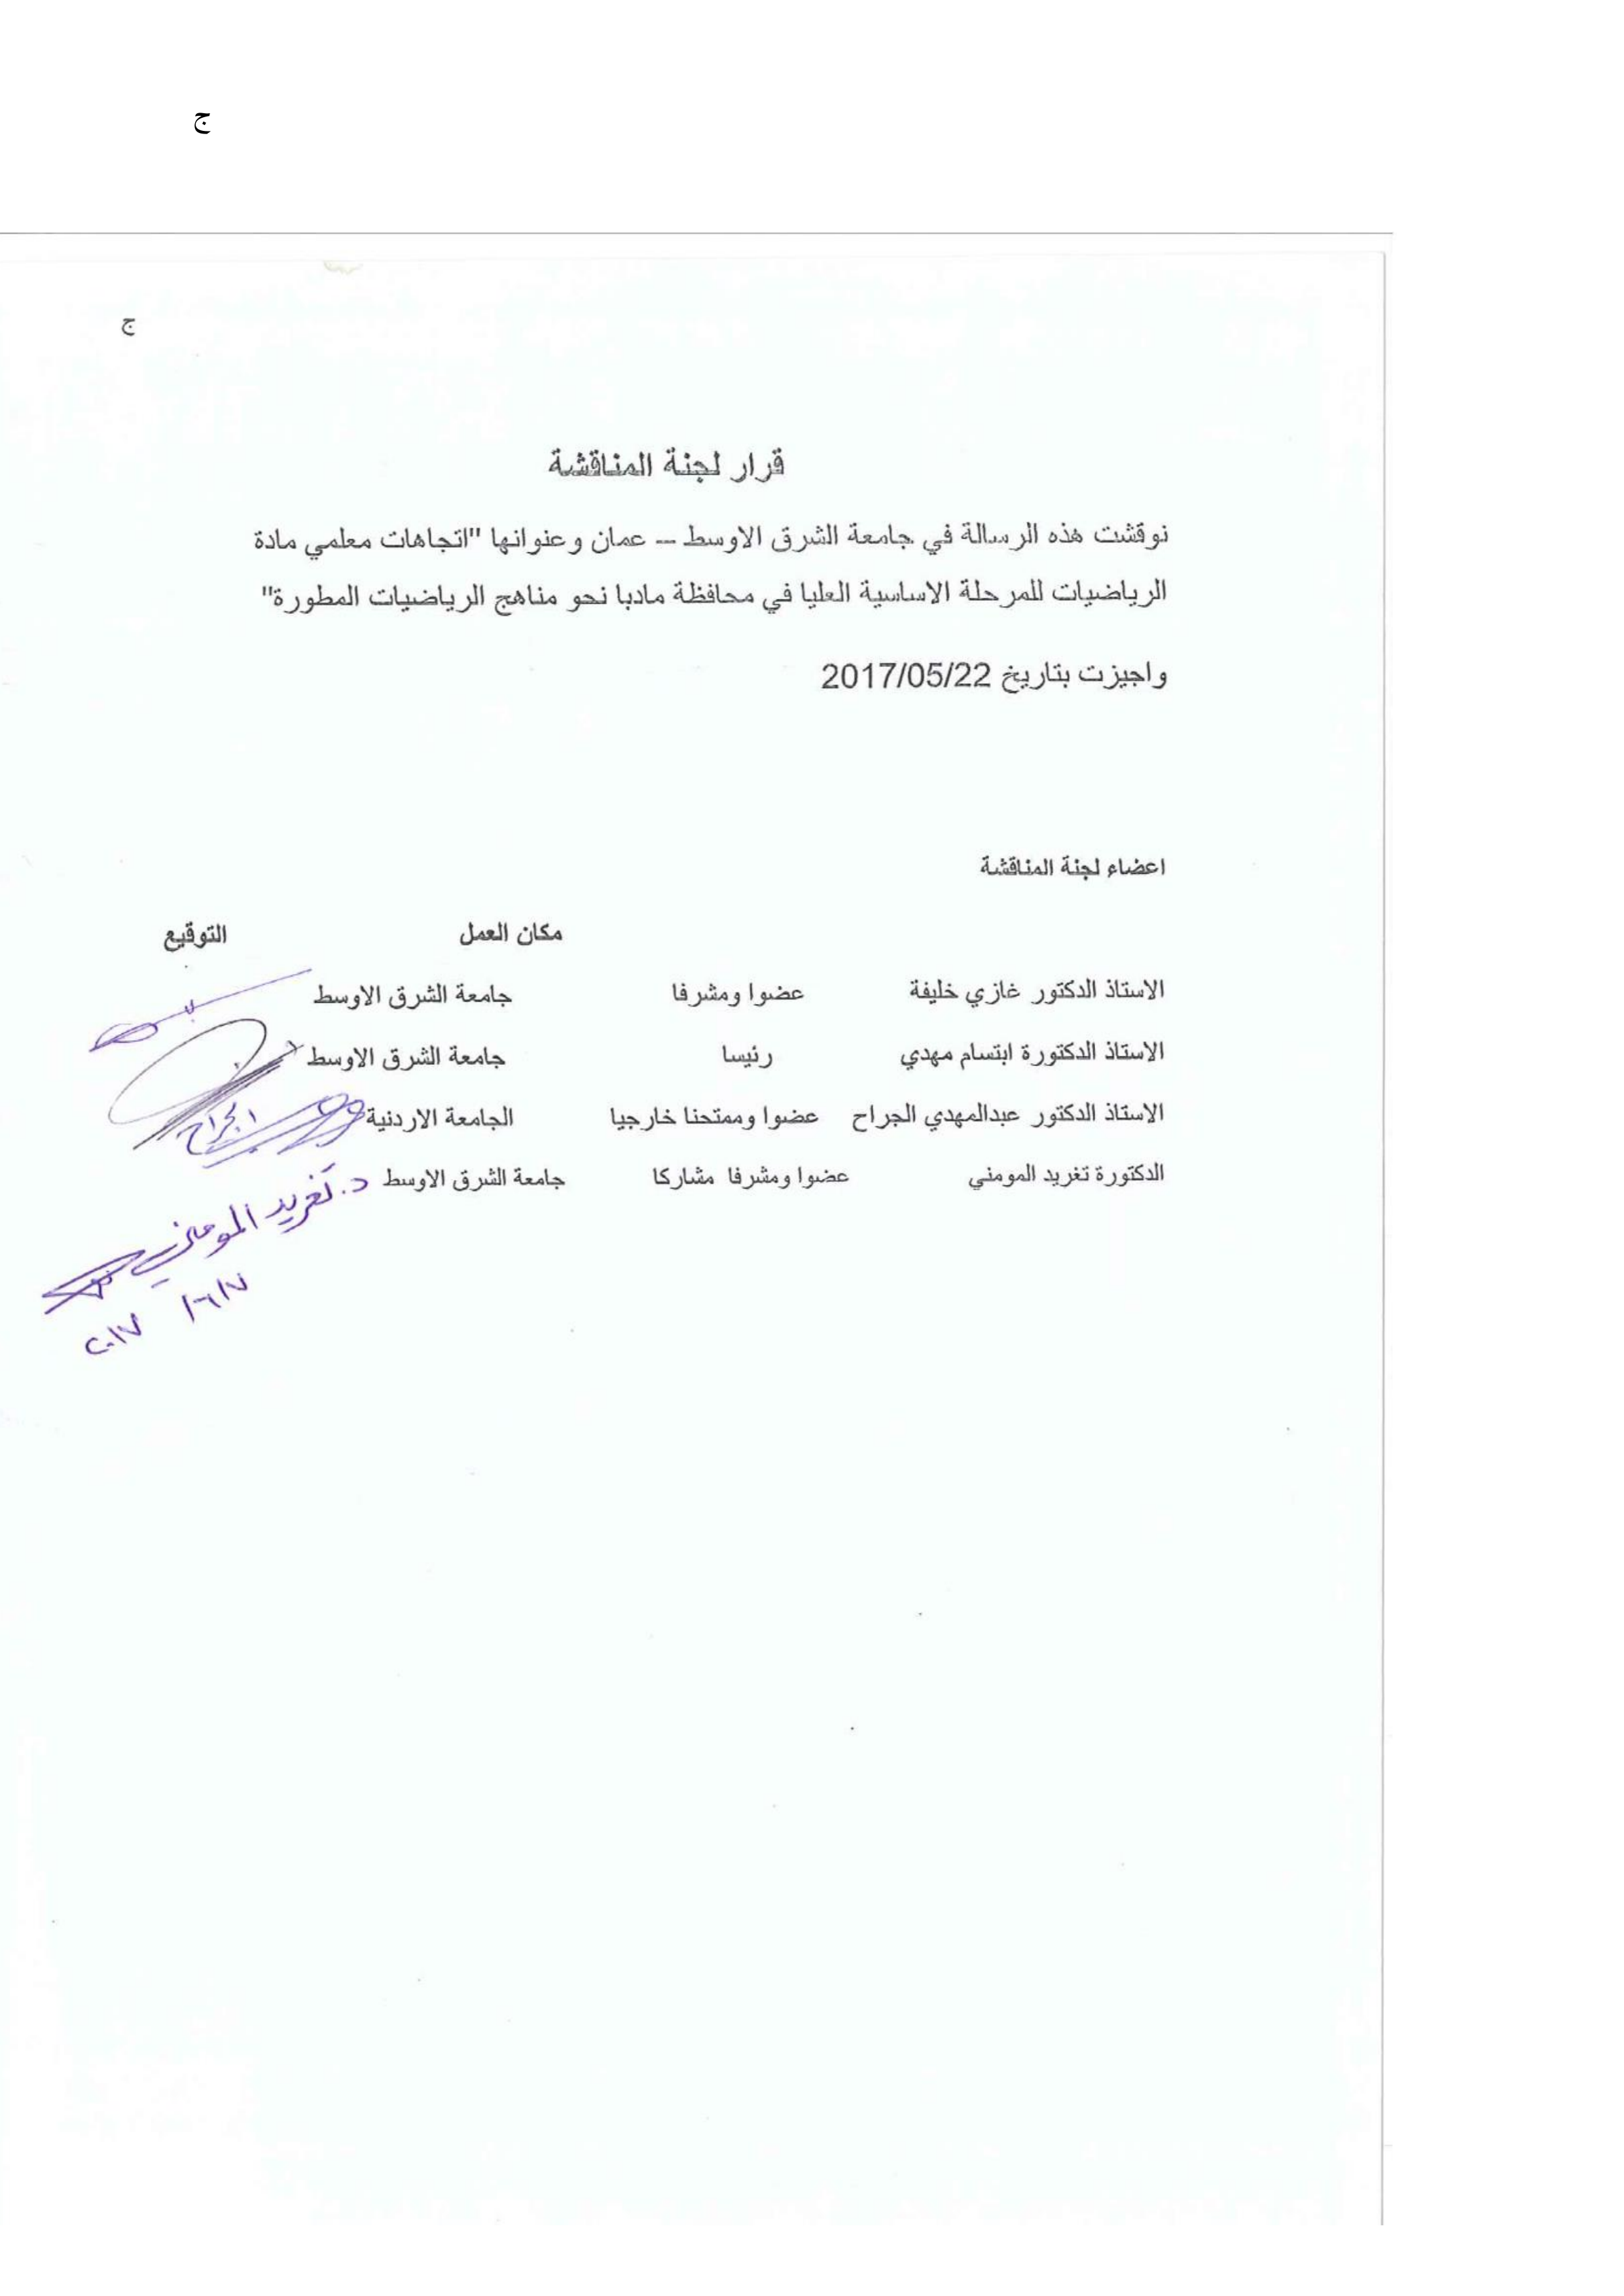 ج
ج
قرار لجنة المناقشة
نوقشت هذه الرسالة في جامعة الشرق الاوسط – عمان وعنوانها "اتجاهات معلمي مادة
الرياضيات للمرحلة الاساسية العليا في محافظة مادبا نحو مناهج الرياضيات المطورة"
واجيزت بتاريخ 2017/05/22
اعضاء لجنة المناقشة
مكان العمل التوقيع
الاستاذ الدكتور غازي خليفة عضوا ومشرفا جامعة الشرق الاوسط
الاستاذ الدكتورة ابتسام مهدي رئيسا جامعة الشرق الاوسط
الاستاذ الدكتور عبدالمهدي الجراح عضوا وممتحنا خارجيا الجامعة الاردنية
الجراح
الدكتورة تغريد المومني عضوا ومشرفا مشاركا جامعة الشرق الاوسط
د. تغريد المومني
٢٠١٧